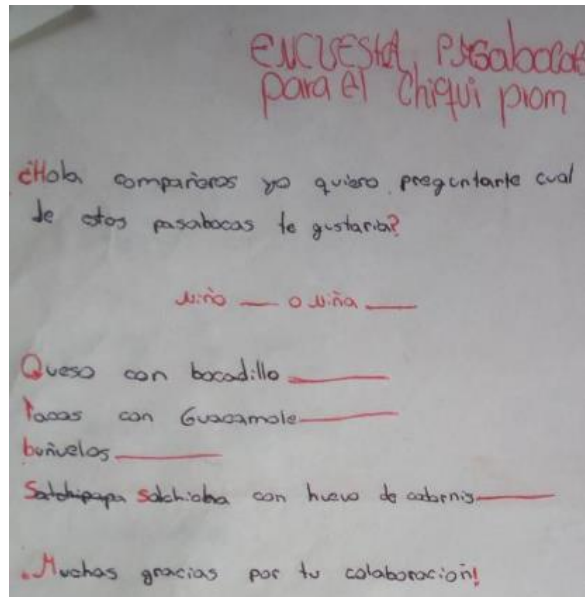 ENCUESTA PASabocas
para el Chiqui prom
¿Hola compañeros yo quiero preguntarte cual
de estos pasabocas te gustaria?
Niño ___ o Niña ___
Queso con bocadillo ___
Papas con Guacamole ___
buñuelos ___
Salchipapa Salchicha con huevo de cobernis ___
¡Muchas gracias por tu colaboracion!